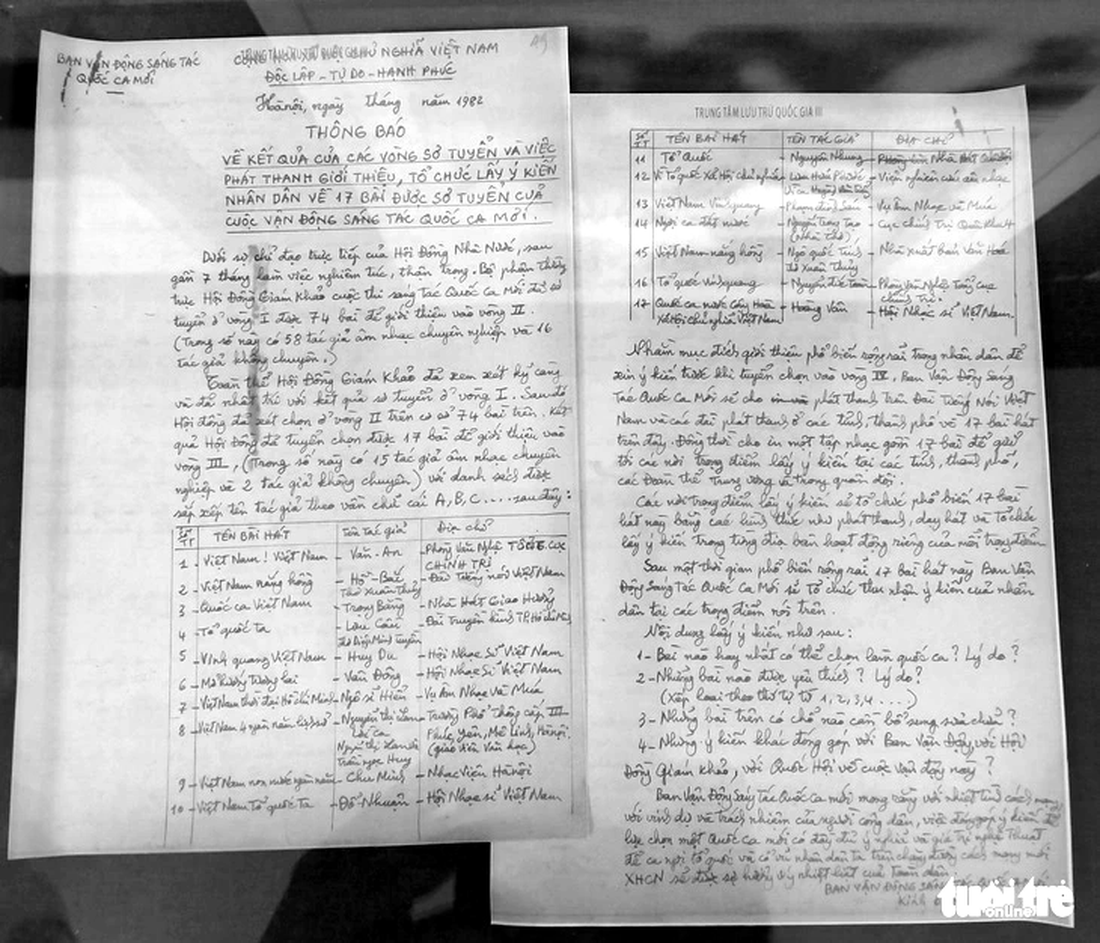 BAN VẬN ĐỘNG SÁNG TÁC
QUỐC CA MỚI
CỘNG HÒA XÃ HỘI CHỦ NGHĨA VIỆT NAM
ĐỘC LẬP - TỰ DO - HẠNH PHÚC
Hà nội, ngày tháng năm 1982
THÔNG BÁO
VỀ KẾT QUẢ CỦA CÁC VÒNG SƠ TUYỂN VÀ VIỆC
PHÁT THANH GIỚI THIỆU, TỔ CHỨC LẤY Ý KIẾN
NHÂN DÂN VỀ 17 BÀI ĐƯỢC SƠ TUYỂN CỦA
CUỘC VẬN ĐỘNG SÁNG TÁC QUỐC CA MỚI.
Dưới sự chỉ đạo trực tiếp của Hội Đồng Nhà Nước, sau
gần 7 tháng làm việc nghiêm túc, thận trọng. Bộ phận thường
trực Hội Đồng Giám Khảo cuộc thi sáng Tác Quốc Ca Mới đã sơ
tuyển ở vòng I được 74 bài để giới thiệu vào vòng II.
(Trong số này có 58 tác giả âm nhạc chuyên nghiệp và 16
tác giả không chuyên.)
Toàn thể Hội Đồng Giám Khảo đã xem xét kỹ càng
và đã nhất trí với kết quả sơ tuyển ở vòng I. Sau đó
Hội đồng đã xét chọn ở vòng II trên cơ sở 74 bài trên. Kết
quả Hội Đồng đã tuyển chọn được 17 bài để giới thiệu vào
vòng III, (Trong số này có 15 tác giả âm nhạc chuyên
nghiệp và 2 tác giả không chuyên) với danh sách được
sắp xếp tên tác giả theo vần chữ cái A, B, C.... sau đây:
SỐ TT TÊN BÀI HÁT TÊN TÁC GIẢ ĐỊA CHỈ
1 - Việt Nam! Việt Nam - Văn - An - Phòng Văn Nghệ Tổng Cục
CHÍNH TRỊ
2 - Việt Nam nắng hồng - Hồ - Bắc - Đài Tiếng nói Việt Nam
Thơ Xuân Thủy
3 - Quốc ca Việt Nam - Trọng Bằng - Nhà Hát Giao Hưởng
4 - Tổ quốc ta - Lưu Cầu - Đài Truyền hình TP. Hồ chí Minh
Thơ Diệp Minh Tuyền
5 - Vinh quang Việt Nam - Huy Du - Hội Nhạc Sĩ Việt Nam
6 - Mở hướng tương lai - Văn Đông - Hội Nhạc Sĩ Việt Nam
7 - Việt Nam thời đại Hồ chí Minh - Ngô sĩ Hiển - Vụ Âm Nhạc và Múa
8 - Việt Nam 4 ngàn năm lịch sử - Nguyễn thị - Trường Phổ thông cấp III -
Lời ca Phúc Yên, Mê Linh, Hà nội.
Nguyễn thị (giáo viên Văn học)
Trần ngọc Huy
9 - Việt Nam non nước ngàn năm - Chu Minh - Nhạc Viện Hà nội
10 - Việt Nam tổ quốc ta - Đỗ Nhuận - Hội Nhạc sĩ Việt Nam
TRUNG TÂM LƯU TRỮ QUỐC GIA III
SỐ TT TÊN BÀI HÁT TÊN TÁC GIẢ ĐỊA CHỈ
11 - Tổ Quốc - Nguyễn Nhung
12 - Vì Tổ quốc Xã Hội Chủ nghĩa - Lưu Hữu Phước - Viện nghiên cứu âm nhạc
13 - Việt Nam Vinh quang - Phạm đình Sáu - Vụ Âm Nhạc và Múa
14 - Ngợi ca đất nước - Nguyễn trọng Tạo - Cục chính trị Quân khu 4
(Nhà thơ)
15 - Việt Nam nắng hồng - Ngô quốc Tính - Nhà xuất bản Văn Hoá
Thơ Xuân Thủy
16 - Tổ quốc vinh quang - Nguyễn đức Toàn - Phòng Văn Nghệ Tổng cục
chính trị.
17 - Quốc ca nước Cộng Hoà - Hoàng Vân - Hội Nhạc sĩ Việt Nam
Xã Hội Chủ nghĩa Việt Nam
Nhằm mục đích giới thiệu phổ biến rộng rãi trong nhân dân để
xin ý kiến trước khi tuyển chọn vào vòng IV. Ban Vận Động Sáng
Tác Quốc Ca Mới sẽ cho phát thanh trên Đài Tiếng Nói Việt
Nam và các đài phát thanh ở các tỉnh, thành phố về 17 bài hát
trên đây. Đồng thời cho in một tập nhạc gồm 17 bài để gửi
tới các nơi trọng điểm lấy ý kiến tại các tỉnh, thành phố,
các Đoàn thể Trung ương và trong quân đội.
Các nơi trọng điểm lấy ý kiến sẽ tổ chức phổ biến 17 bài
hát này bằng các hình thức như phát thanh, dạy hát và tổ chức
lấy ý kiến trong từng địa bàn hoạt động riêng của mỗi trọng điểm.
Sau một thời gian phổ biến rộng rãi 17 bài hát này Ban Vận
Động Sáng Tác Quốc Ca Mới sẽ tổ chức thu nhận ý kiến của nhân
dân tại các trọng điểm nói trên.
Nội dung lấy ý kiến như sau:
1 - Bài nào hay nhất có thể chọn làm quốc ca? Lý do?
2 - Những bài nào được yêu thích? Lý do?
(Xếp loại theo thứ tự 1, 2, 3, 4.....)
3 - Những bài trên có chỗ nào cần bổ sung sửa chữa?
4 - Những ý kiến khác đóng góp với Ban Vận Động, với Hội
Đồng Giám khảo, với Quốc Hội về cuộc vận động này?
Ban Vận Động Sáng Tác Quốc Ca mới mong rằng với nhiệt tình cách mạng
với vinh dự và trách nhiệm của người công dân, việc đóng góp ý kiến để
lựa chọn một Quốc Ca mới có đầy đủ ý nghĩa và giá trị nghệ thuật
để ca ngợi tổ quốc và cổ vũ nhân dân ta trên chặng đường cách mạng mới
XHCN sẽ được sự hưởng ứng nhiệt liệt của toàn dân.
BAN VẬN ĐỘNG SÁNG
tuổi trẻ
online